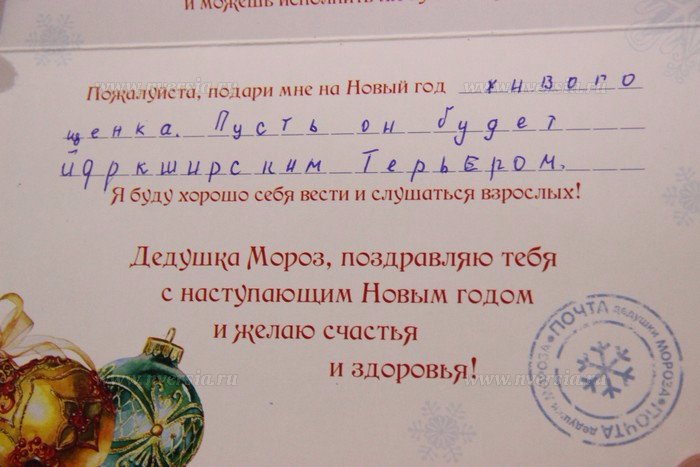 и можешь исполнить
www.nversia.ru
Пожалуйста, подари мне на Новый год живого
щенка. Пусть он будет
йдркширским Терьером.
Я буду хорошо себя вести и слушаться взрослых!
Дедушка Мороз, поздравляю тебя
с наступающим Новым годом
и желаю счастья
и здоровья!
www.nversia.ru
www.nversia.ru
ПОЧТА дедушки МОРОЗА
ПОЧТА дедушки МОРОЗА